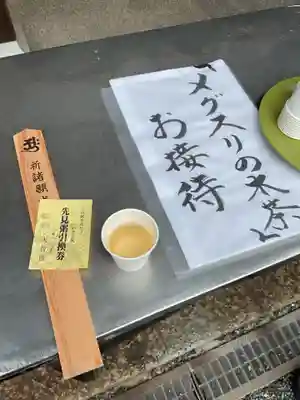 メグスリの木茶
お接待
祈諸願
先見粥引換券